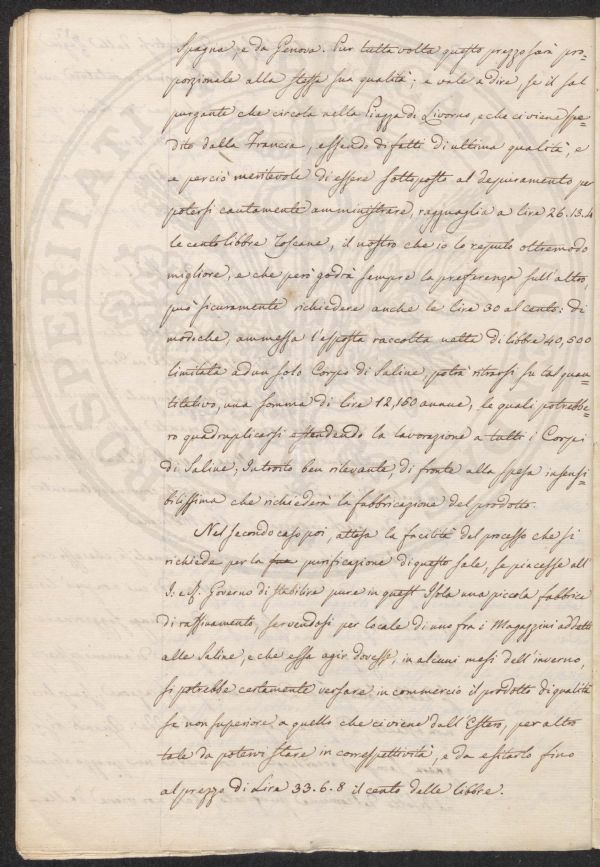 Spagna, e da Genova. Pur tutta volta questo prezzo sarà pro=
porzionale alla stessa sua qualità; e vale a dire, se il sal
purgante che circola nella Piazza di Livorno, e che ci viene spe=
dito dalla Francia, essendo di fatti di ultima qualità, e
e perciò meritevole di essere sottoposto al depuramento per
potersi cautamente amministrare, ragguaglia a lire 26.13.4
le cento libbre Toscane, il nostro che io lo reputo oltremodo
migliore, e che però godrà sempre la preferenza sull'altro,
può sicuramente richiedere anche le lire 30 al cento: di
modoche, ammessa l'esposta raccolta netta di libbre 40,500
limitata ad un solo Corpo di Saline, potrà ritrarsi su tal quan=
titativo, una somma di lire 12,150 annue, le quali potrebbe=
ro quadruplicarsi estendendo la lavorazione a tutti i Corpi
di Saline; Introito ben rilevante, di fronte alla spesa insensi=
bilissima che richiederà la fabbricazione del prodotto.
Nel secondo caso poi, attesa la facilità del processo che si
richiede per la sua purificazione di questo sale, se piacesse all'
I. e R. Governo di stabilire pure in quest'Isola una piccola fabbrica
di raffinamento, servendosi per locale di uno fra i Magazzini addetti
alle Saline, e che essa agir dovesse, in alcuni mesi dell'inverno,
si potrebbe certamente versare in commercio il prodotto di qualità
se non superiore a quello che ci viene dall'Estero, per altro
tale da potervi stare in correspettività, e da esitarlo fino
al prezzo di Lire 33.6.8 il cento delle libbre.